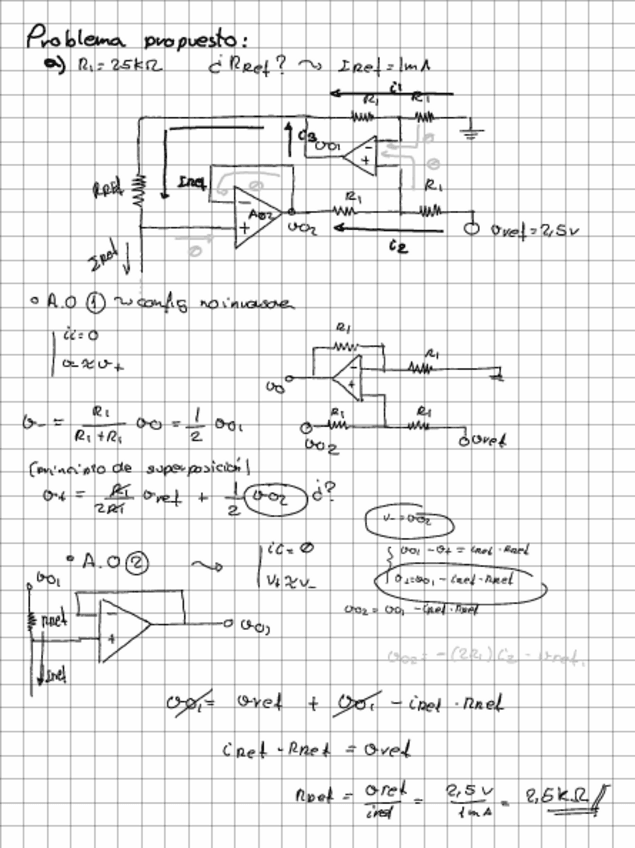 Problema propuesto:
a) R1 = 25kΩ ¿RRef? ~> IRef = 1mA
i1
R1 R1
i3
vo1
-
+
RRef
IRef
-
+
AO2
vo2
R1
R1
vref = 2,5v
IRef
i2
• A.O ① ~> config no inversora
ii = 0
v- ≈ v+
R1
R1
vo
-
+
R1
R1
vo2
vref
v- = R1/(R1+R1) vo = 1/2 vo1
(principio de superposición)
v+ = R1/2R1 vref + 1/2 vo2 ¿?
v- = vo2
• A.O ② ~> ii = 0
v+ ≈ v-
vo1 - v+ = iref · Rref
v+ = vo1 - iref · Rref
vo2 = vo1 - iref · Rref
vo1
Rref
Iref
-
+
vo2 = -(2R1) i2 - vref.
vo1 = vref + vo1 - iref · Rref
iref · Rref = vref
Rref = vref/iref = 2,5 v/1mA = 2,5kΩ